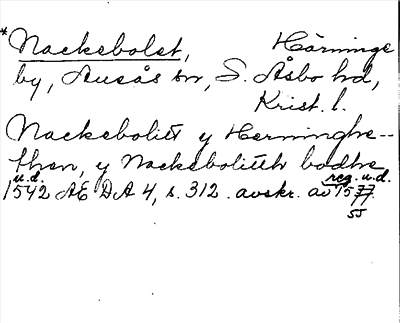 *Nackebolet, Härninge
by, Ausås sn, S. Åsbo hd,
Krist. l.
Nackeboliit y Herninghe-
then, y Nackebolitth bodhe
u.d. reg. u.d.
1542 AE DA 4, s. 312. avskr. av 1577
55